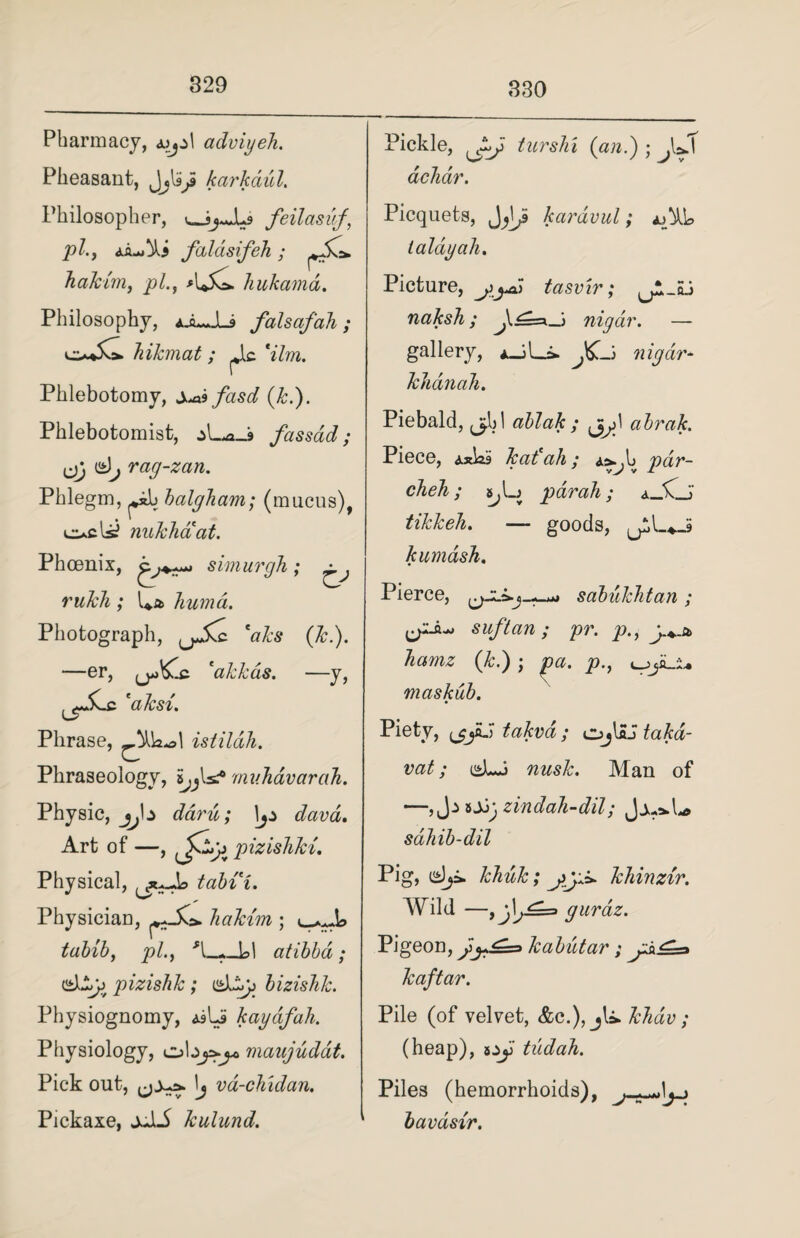 329
Pharmacy, ادویه adviyeh.
Pheasant, قرقاول karkáúl.
Philosopher, فیلسوف feilasúf,
pl., فلاسفه falásifeh; حکیم
hakím, pl., حکماء hukamá.
Philosophy, فلسفه falsafah;
حکمت hikmat; علم ‘ilm.
Phlebotomy, فصد fasd (k.).
Phlebotomist, فصاد fassád;
رگ زن rag-zan.
Phlegm, بلغم balgham; (mucus),
نخاعت nukhá‘at.
Phœnix, سیمرغ simurgh; رخ
rukh; هما humá.
Photograph, عکس ‘aks (k.).
—er, عکاس ‘akkás. —y,
عکسی ‘aksí.
Phrase, اصطلاح istiláh.
Phraseology, محاوره muhávarah.
Physic, دارو dárú; دوا davá.
Art of —, پزشکی pizishkí.
Physical, طبیعی tabí‘í.
Physician, حکیم hakím; طبیب
tabíb, pl., اطباء atibbá;
پزشک pizishk; بزشک bizishk.
Physiognomy, قیافه kayáfah.
Physiology, موجودات maujúdát.
Pick out, وا چیدن vá-chídan.
Pickaxe, کلند kulund.
330
Pickle, ترشی turshí (an.); آچار
áchár.
Picquets, قراول karávul; طلایه
taláyah.
Picture, تصویر tasvír; نقش
naksh; نگار nigár. —
gallery, نگار خانه nigár-
khánah.
Piebald, ابلق ablak; ابرق abrak.
Piece, قطعه kat‘ah; پارچه pár-
cheh; پاره párah; تکه
tikkeh. — goods, قماش
kumásh.
Pierce, سبوختن sabúkhtan;
سفتن suftan; pr. p., همز
hamz (k.); pa. p., مثقوب
maskúb.
Piety, تقوی takvá; تقاوت taká-
vat; نسک nusk. Man of
—, زنده دل zindah-dil; صاحبدل
sáhib-dil
Pig, خوک khúk; خنزیر khinzír.
Wild —, گراز guráz.
Pigeon, کبوتر kabútar; کفتر
kaftar.
Pile (of velvet, &c.), خاو kháv;
(heap), توده túdah.
Piles (hemorrhoids), بواسیر
bavásír.